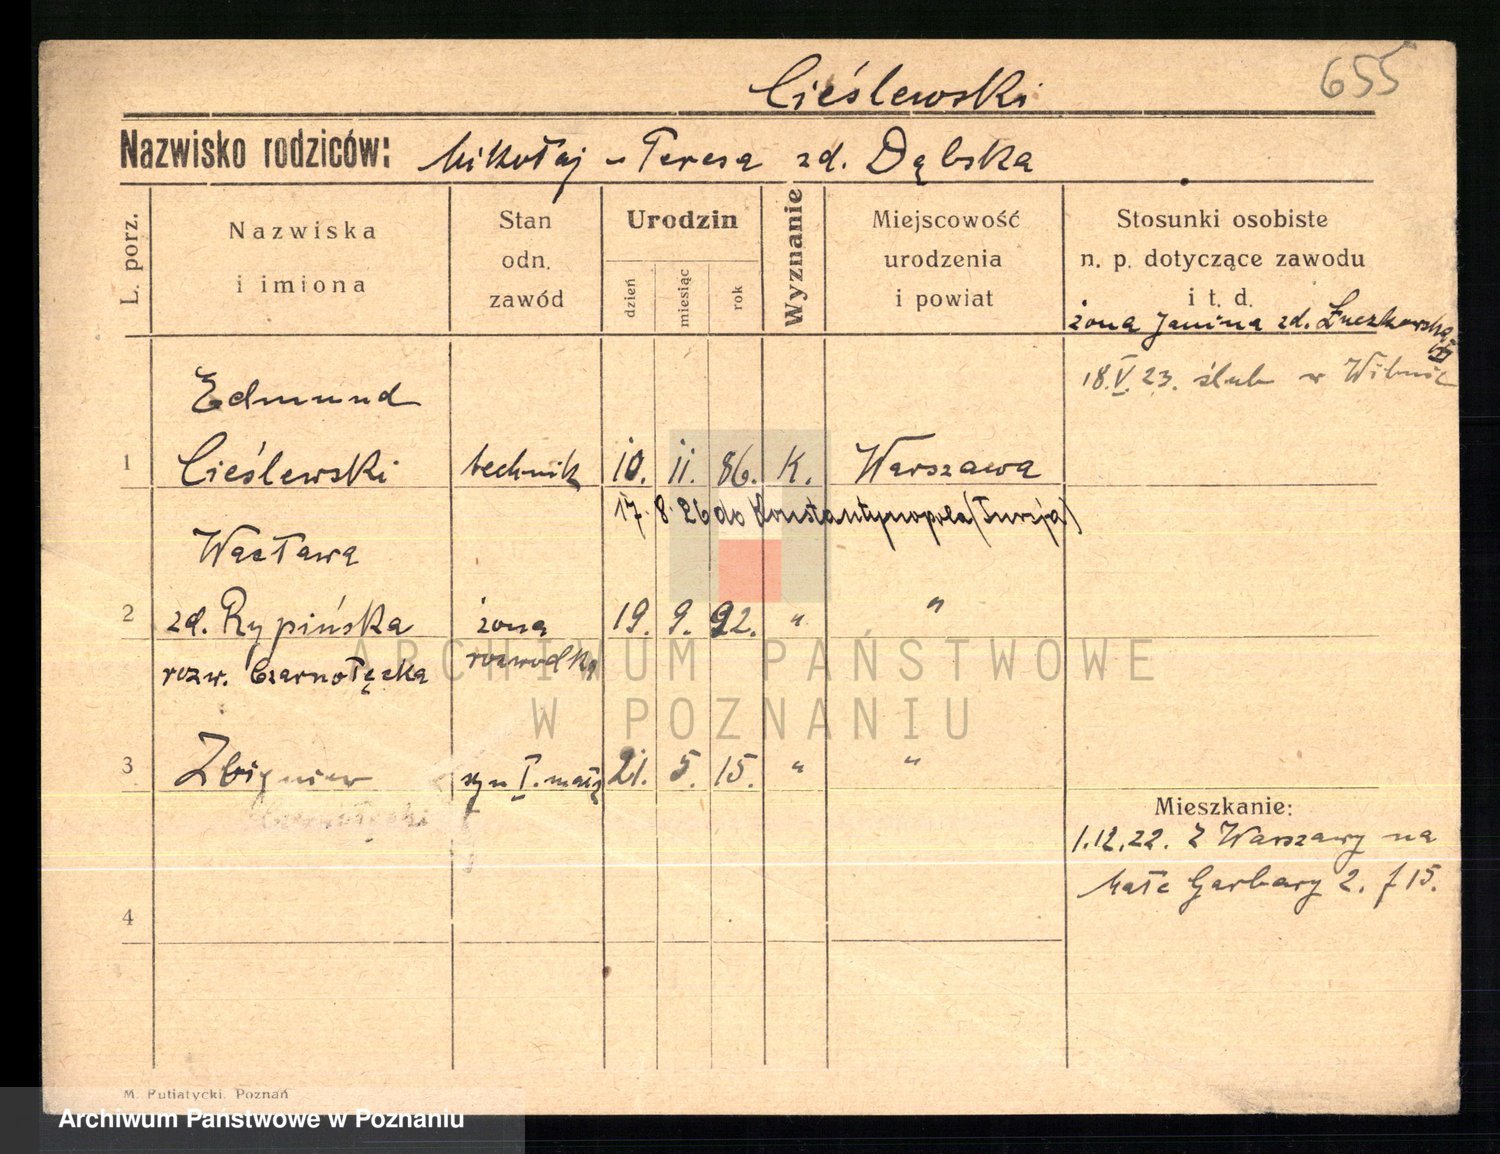 655
Cieślewski
Nazwisko rodziców: Mikołaj - Teresa zd. Dąbska
L. porz.
Nazwiska i imiona
Stan odn. zawód
Urodzin
dzień
miesiąc
rok
Wyznanie
Miejscowość urodzenia i powiat
Stosunki osobiste n. p. dotyczące zawodu i t. d.
żona Janina zd.
18.V.23. ślub w Wilnie
Edmund
1 Cieślewski technik 10. 11. 86. K. Warszawa
17. 8. 26 do Konstantynopola (Turcja)
Wacława
2 zd. Rypińska żona 19. 9. 92. " "
rozw. Czarnołęcka rozwodka
3 Zbigniew syn I. małż 21. 5. 15. " "
Mieszkanie:
1.12.22. Z Warszawy na
Małe Garbary 2. f 15.
4
M. Putiatycki, Poznań
ARCHIWUM PAŃSTWOWE
W POZNANIU
Archiwum Państwowe w Poznaniu